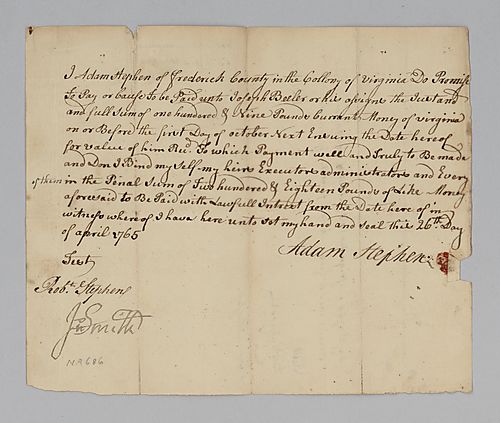 I Adam Stephen of Frederick County in the Collony of Virginia Do Promise
to Pay or Cause To be Paid unto Joseph Beeler or his assigns the Just and
and full Sum of one hundred & Nine Pounds Currant Money of virginia
on or Before the first Day of october Next Ensuing the Date hereof
for value of him Recd. To which Payment well and Truly to Be made
and Don I Bind my Self my heirs Executors administrators and Every
of them in the Penal Sum of Two hundred & Eighteen Pounds of Like Money
aforesaid to Be Paid with Lawfull Intrest from the Date here of in
witness where of I have here unto set my hand and Seal this 26th Day
of april 1765
Adam Stephen
Test
Robt. Stephens
Smith
N.R 686